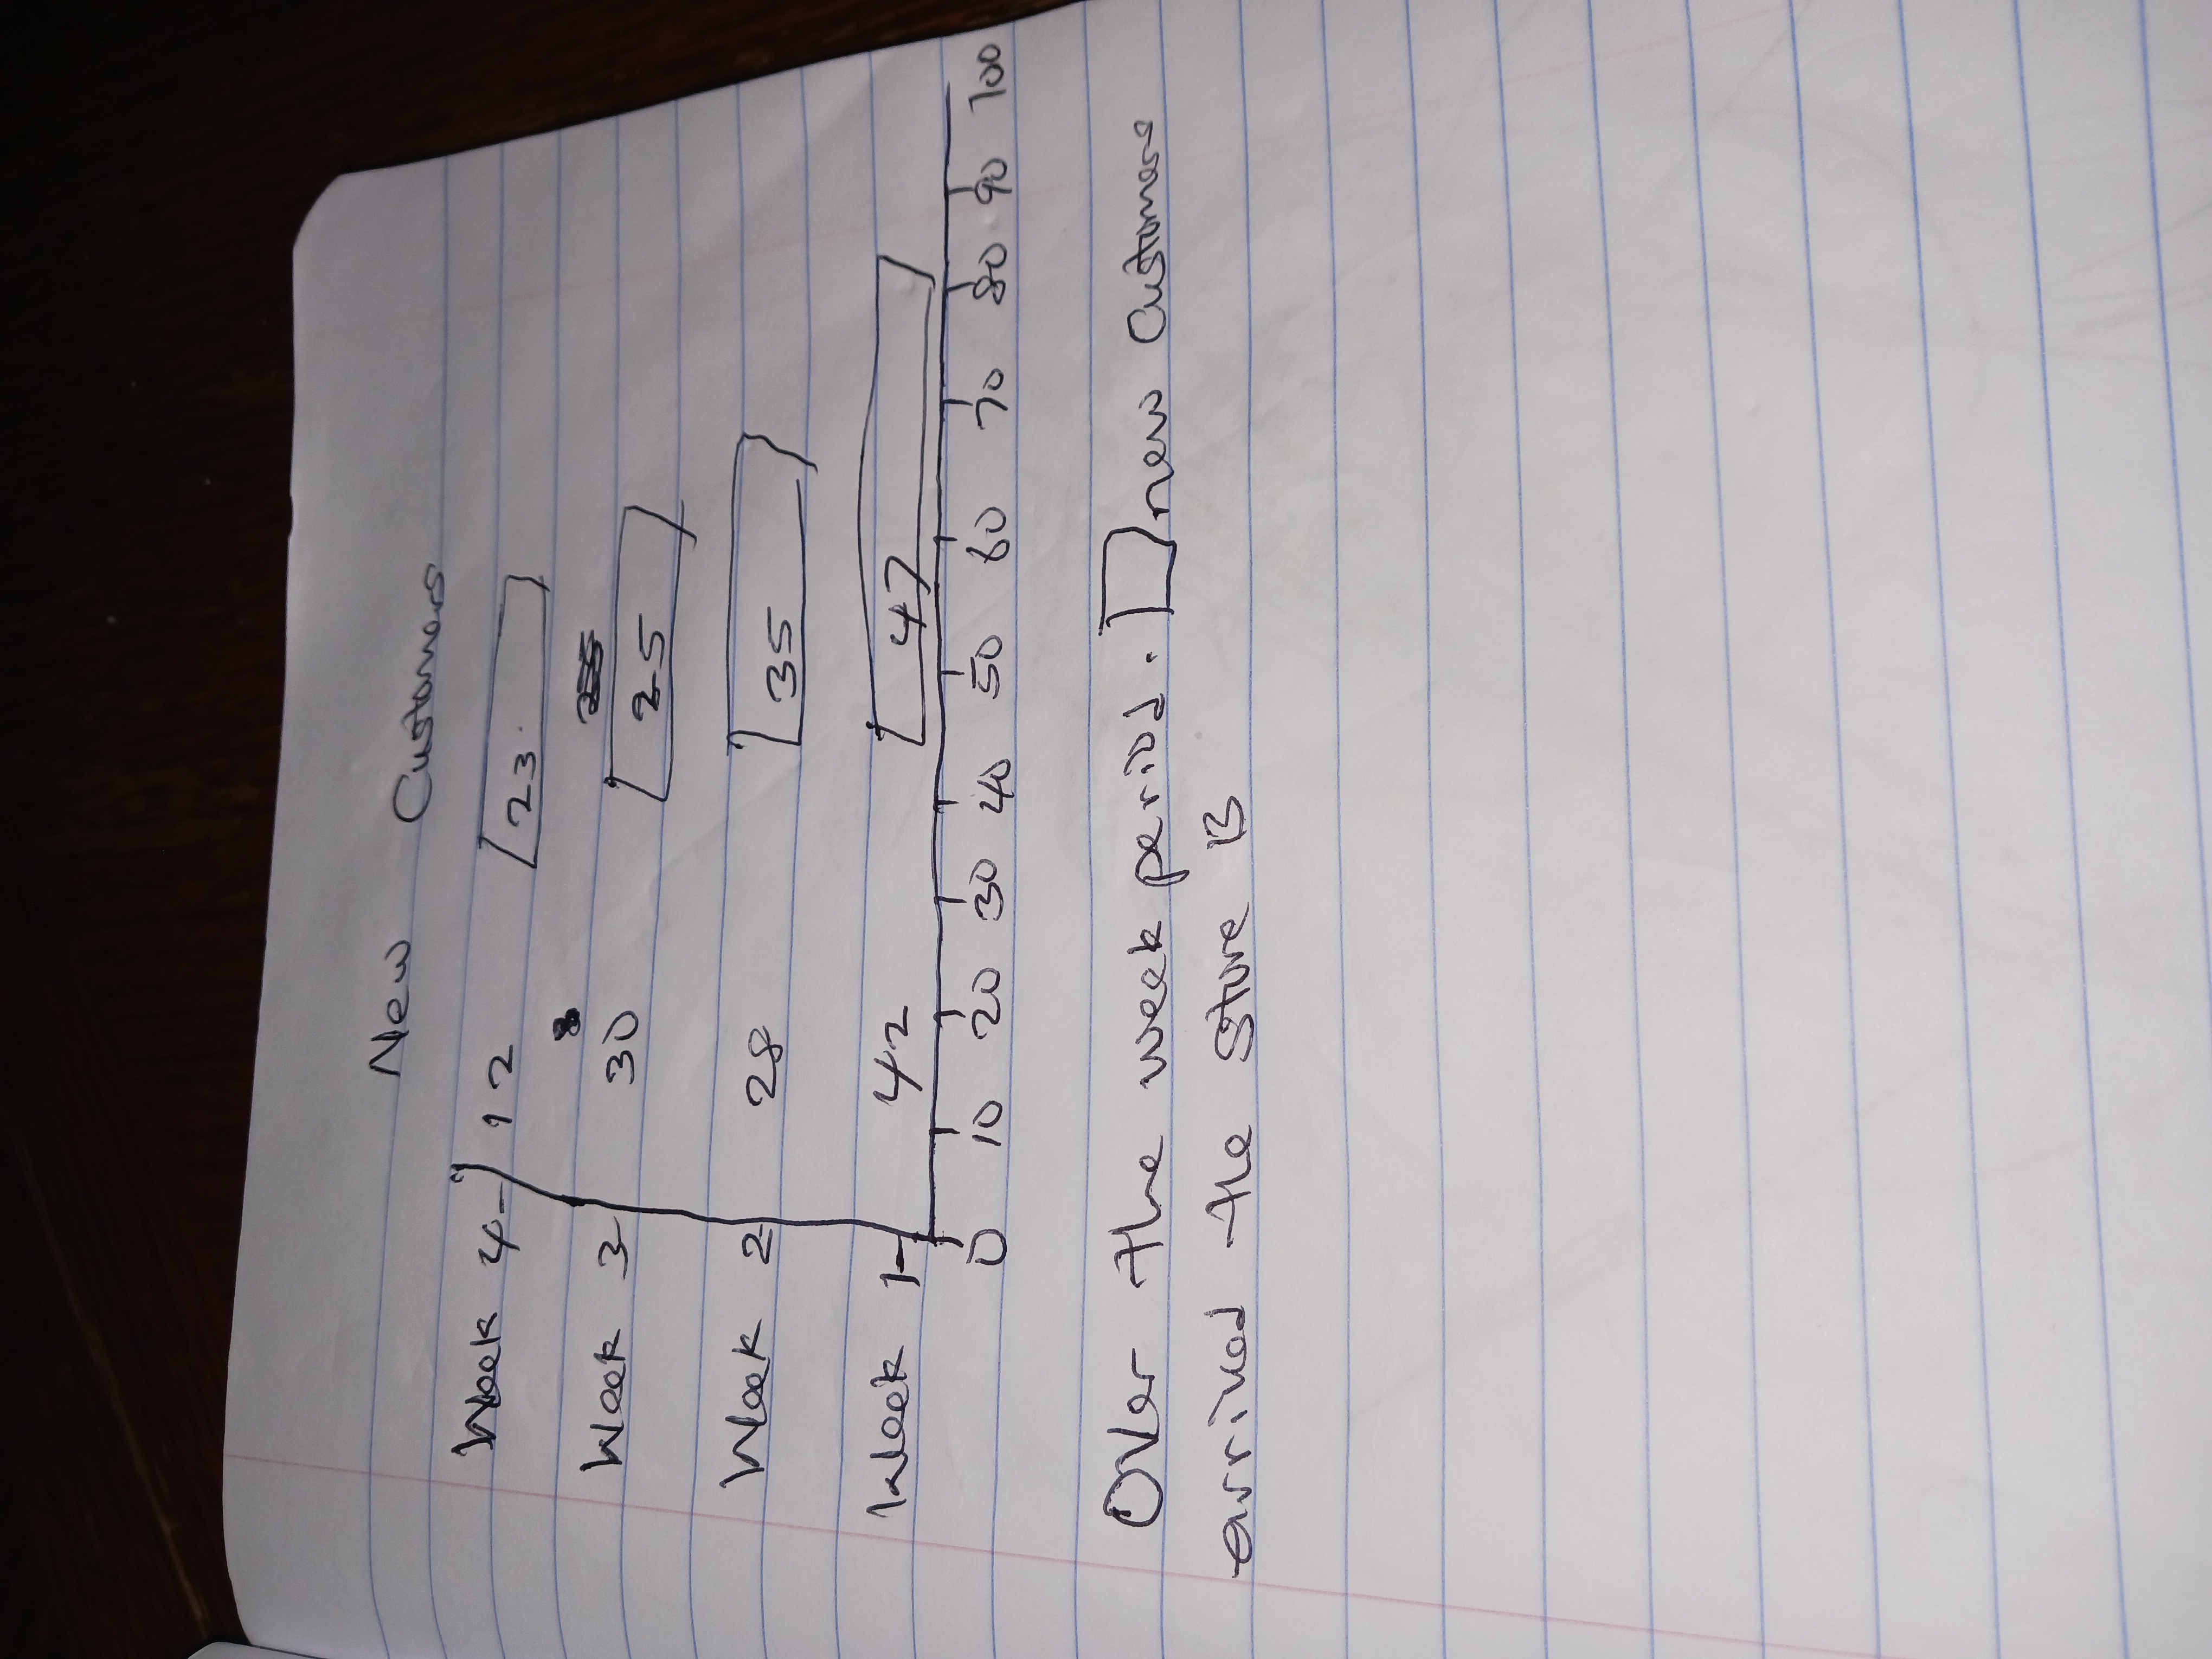 New Customers
Week 4 12 23.
Week 3 30 25
Week 2 28 35
Week 1 42 47
0 10 20 30 40 50 60 70 80 90 100
Over the week period. new Customers
arrived the store B